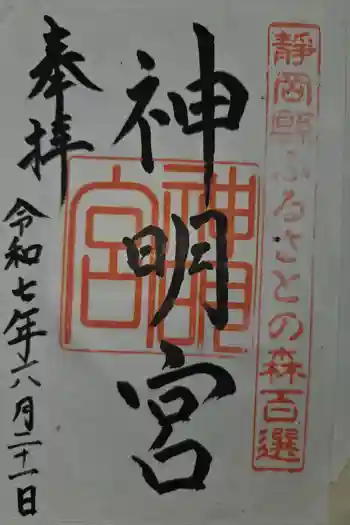 静岡縣ふるさとの森百選
神明宮
神明宮
奉拝
令和七年六月二十一日